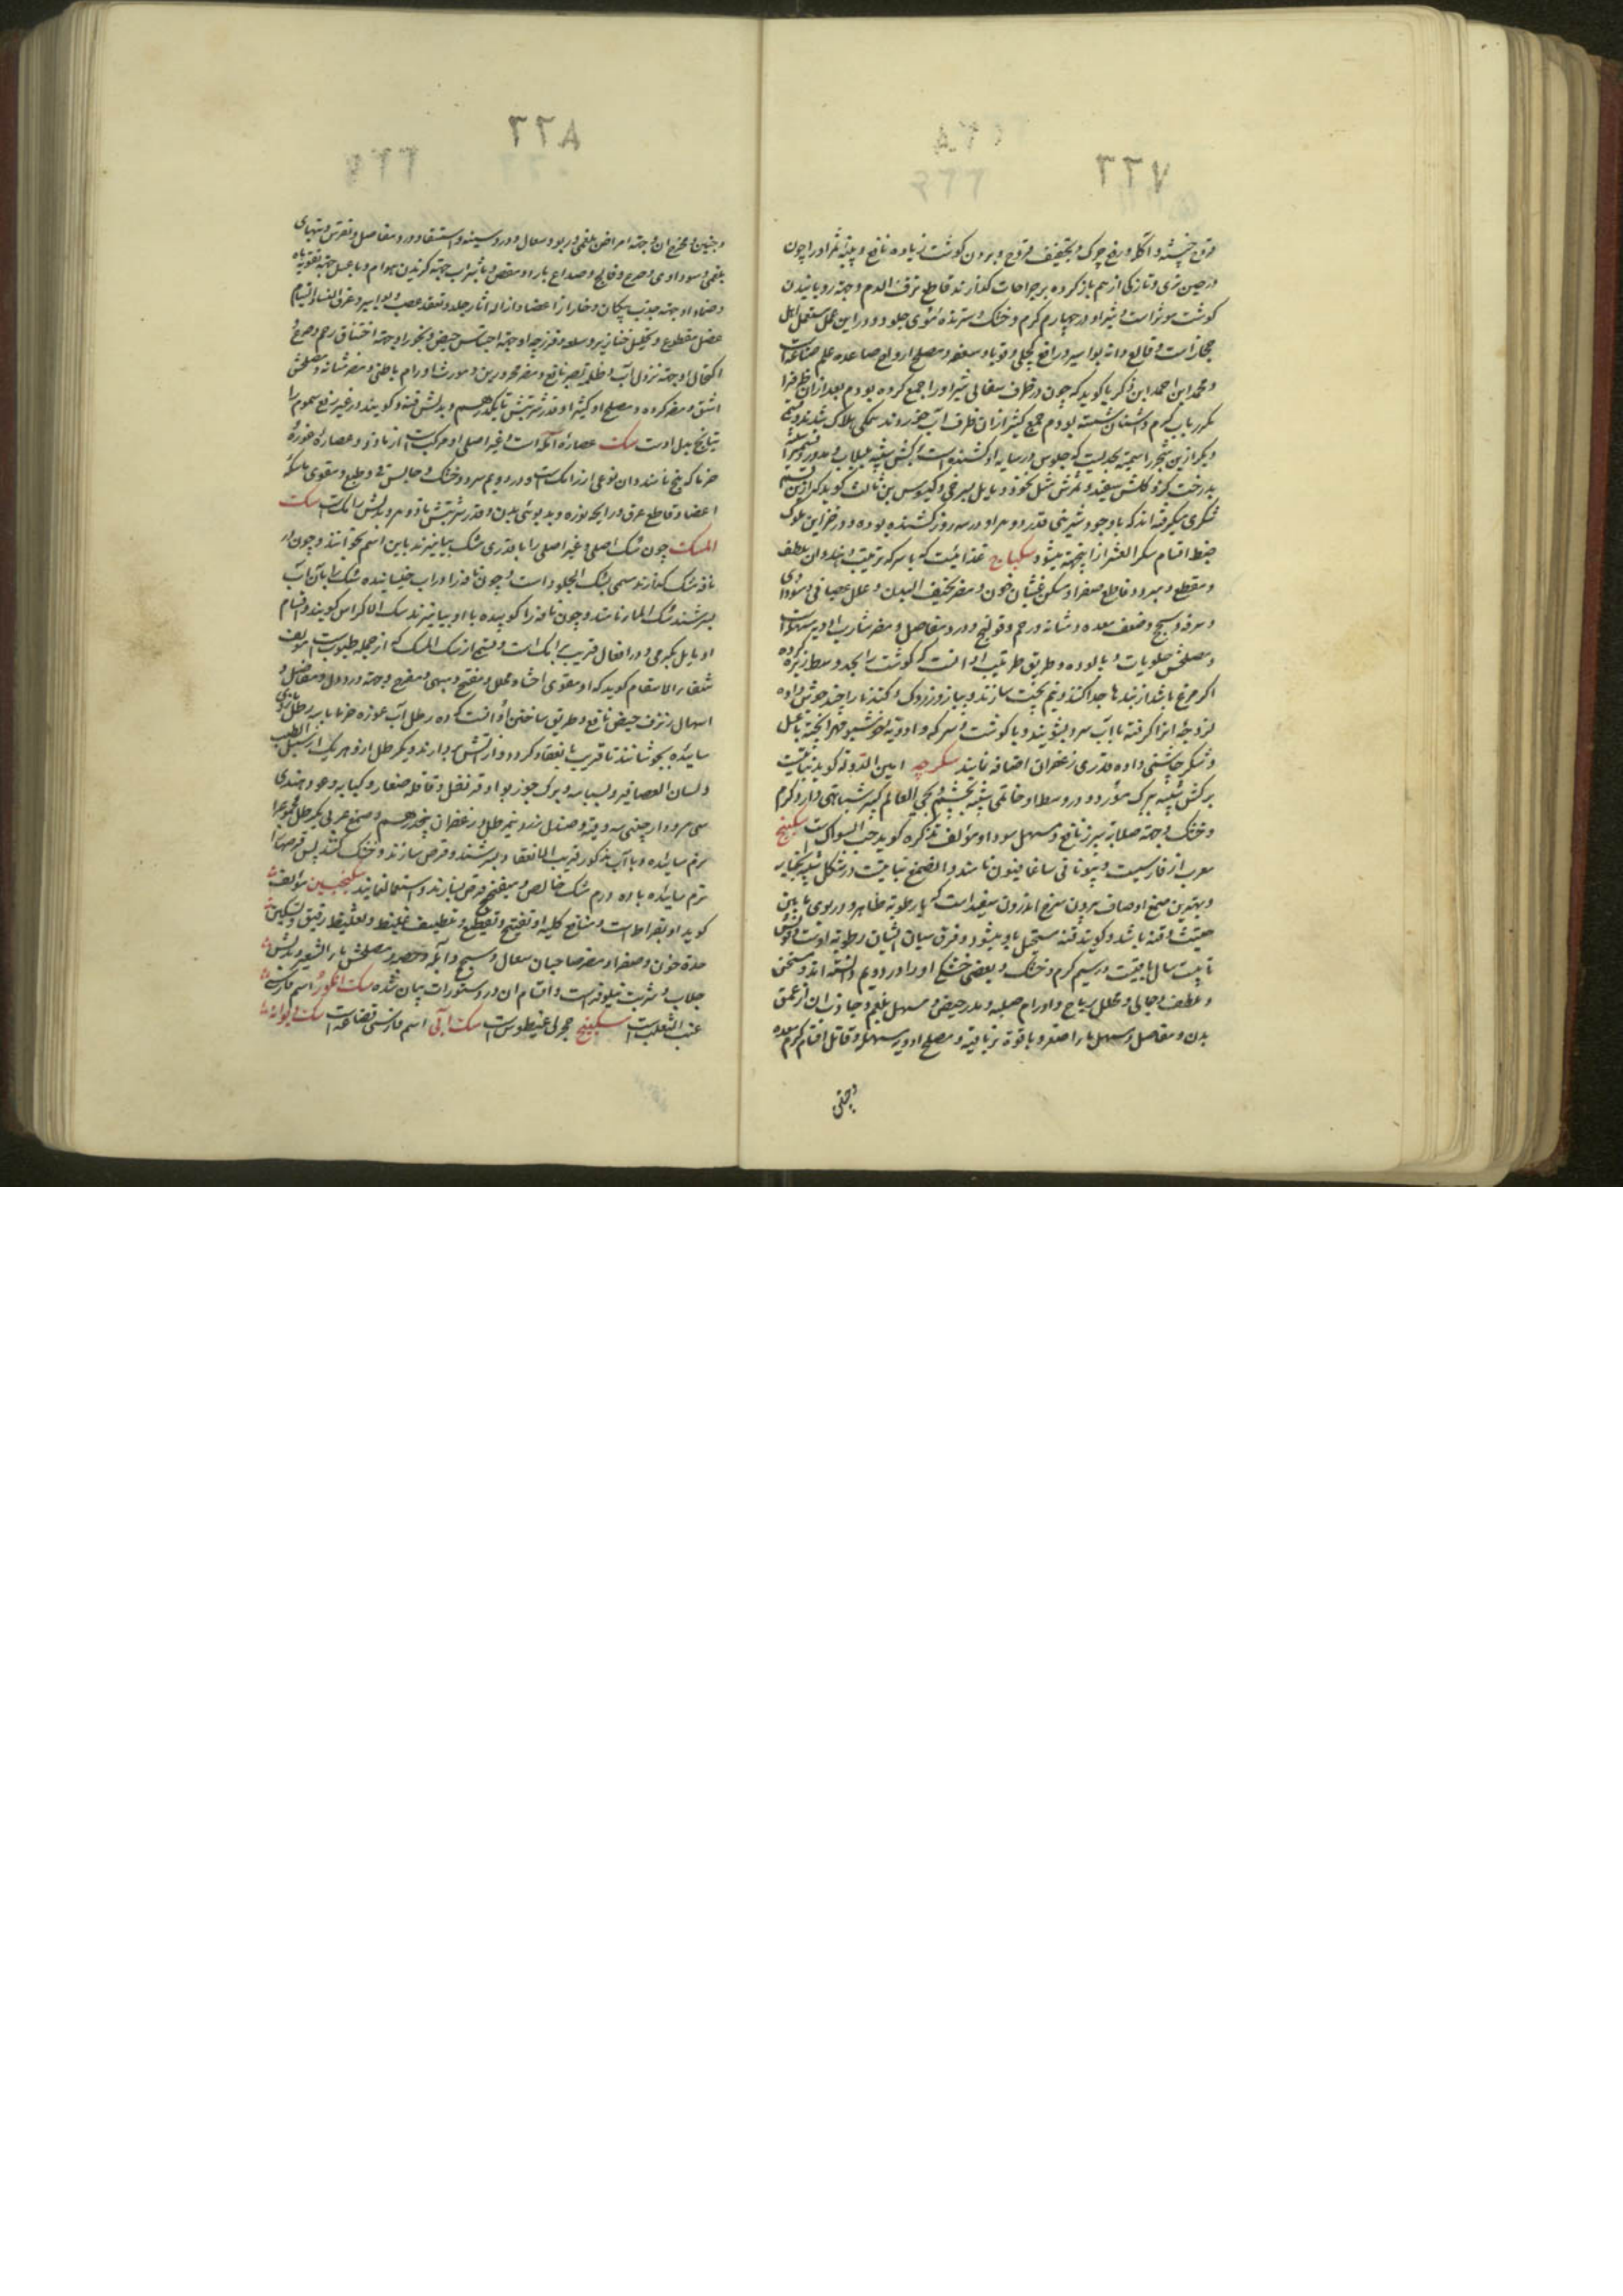 ٣٣٧
قروح خبیثه و آکله و رفع چرک و تجفیف قروح و بردن گوشت زیاده نافع و پنبه ثمر او را چون
در حین تری و تازگی از هم باز کرده بر جراحات گذارند قاطع نزف الدم و جهة رویانیدن
گوشت موثر است و شیر او در چهارم گرم و خشک و سترنده موی جلود و در این عمل مستعمل اهل
حجاز است و قالع دانه بواسیر و رافع کچلی و قوبا و سعفه و مصلح ارواح صاعده علم صناعت
و محمد ابن احمد ابن ذکریا گوید که چون در ظرف سفالی شیر او را جمع کرده بودم بعد از آن ظرف را
مکرر بآب گرم و اشنان شسته بودم جمع کثیر از آن ظرف آب خوردند همگی هلاک شدند و قسمی
دیگر از این شجر را سمیة بحدیست که جلوس در سایه او کشنده است و برگش شبیه بلبلاب و
بدرخت گرد و گلش سفید و ثمرش مثل نخود و مایل بسرخی و گوید که از این قسم
شکری میگرفته اند که با وجود شیرینی قدر دو درهم او در سه روز کشنده بوده و در خزاین ملوک
ضبط اقسام سکر العشر از اینجهة میشود سکباج غذائیست که با سرکه ترتیب دهند و آن ملطف
و مقطع و مبرد و قاطع صفرا و مسکن غثیان خون و مضر نحیف البدن و علل عصبانی و سوداوی
و سرفه و سحج و ضعف معده و مثانه و رحم و قولنج و درد مفاصل و مضر شارب ادویه مسهله است
و مصلحش حلویات و پالوده و طریق ترتیب او آنست که گوشت را بحد وسط ریزه کرده
اگر مرغ باشد از بندها جدا کنند و نیم پخت سازند و پیاز و زردک و کندنا را چند جوش داده
لزوجة آنرا گرفته با آب سرد بشویند و با گوشت و سرکه و ادویه خوشبو مهرا پخته با عسل
و شکر چاشنی داده قدری زعفران اضافه نمایند سکرجه امین الدوله گوید نباتیست
برگش شبیه ببرگ مورد و در وسط او خاتمی شبیه بچشم و بحی العالم کبیر شباهتی دارد و گرم
و خشک و جهة صلابة سپرز نافع و مسهل سودا و مؤلف تذکره گوید حب السواکست سکبینج
معرب از فارسیست و بیونانی ساغافینون نامند و آن صمغ نباتیست در شکل شبیه بخیار
و بهترین صمغ او صاف بیرون سرخ اندرون سفید است که با رطوبة ظاهر و در بوی مابین
حلتیت و قنه باشد و گویند قنه مستحیل باو میشود و فرق میان ایشان رطوبة اوست و قوتش
تا بیست سال باقیست در سیم گرم و خشک و بعضی خشکی او را در دویم دانسته اند و مسخن
و ملطف و جالی و محلل ریاح و اورام صلبه و مدر حیض و مسهل بلغم و جاذب آن از عمق
بدن و مفاصل و مسهل ماء اصفر و با قوة تریاقیه و مصلح ادویه مسهله و قاتل اقسام کرم معده
و جنین
٣٣٨
و جنین و مخرج آن و جهة امراض بلغمی و ربو و سعال و درد سینه و استسقا و درد مفاصل و نقرس و تبهای
بلغمی و سوداوی و صرع و فالج و صداع بارد و مغص و با شراب جهة گزیدن هوام و با عسل جهة تقویة باه
و ضماد او جهة جذب پیکان و خار از اعضا و ازاله آثار جلد و تعقد عصب و بواسیر و عرق النسا و التیام
عضل مقطوع و تحلیل خنازیر و سلعه و فرزجه او جهة احتباس حیض و بخور او جهة اختناق رحم و صرع و
اکتحال او جهة نزول آب و ظلمة بصر نافع و مضر محرورین و مورث اورام باطنی و مضر مثانه و مصلحش
اشق و مضر گرده و مصلح او کثیرا و قدر شربتش تا یکدرهم و بدلش قنه و گویند در غیر رفع سموم
بدل اوست سک عصاره آمله است و غیر اصلی او مرکبست از مازو و عصاره غوره
خرما که بلح نامند و آن نوعی از رامک است و در دویم سرد و خشک و حابس قی و طبع و مقوی ماسکه
اعضا و قاطع عرق و رایحه نوره و بدبوئی بدن و قدر شربتش تا دو درهم و بدلش رامک است سک
المسک چون سک اصلی و غیر اصلی را با قدری مشک بیامیزند باین اسم خوانند و چون در
نافه مشک گذارند مسمی بسک الجلود است و چون نافه را در آب خیسانیده سک را بآن آب
بسرشند سک الماء نامند و چون نافه را کوبیده با او بیامیزند سک الاکراس گویند و اقسام
او مایل بگرمی و در افعال قریب برامک است و قسمی از سک المسک که از جمله طیوب است مؤلف
شفاء الاسقام گوید که او مقوی احشا و محلل و مفتح و مبهی و مفرح و جهة درد دل و مفاصل و
اسهال و نزف حیض نافع و طریق ساختن او آنست که ده رطل آب غوره خرما با سه رطل مازوی
سائیده بجوشانند تا قریب بانعقاد گردد و از آتش بردارند و یکرطل از هر یک از سنبل الطیب
و لسان العصافیر و بسباسه و برگ جوز بوا و قرنفل و قاقله صغار و کبابه و عود هندی
سی درم و دارچینی سه وقیه و صندل زرد نیمرطل و زعفران پنجدرهم و صمغ عربی یکرطل مجموع را
نرم سائیده و با آب مذکور قریب الانعقاد بسرشند و قرص سازند و خشک کنند پس قرصها را
نرم سائیده با ده درم مشک خالص و میفختج قرص سازند و استعمال نمایند سکنجبین مؤلف
گوید او بقراط است و منافع کلیه او تفتیح و تقطیع و تلطیف غلیظ و تغلیظ رقیق و تسکین
حدة خون و صفرا و مضر صاحبان سعال و سحج و آبله و حصبه و مصلحش ماء الشعیر و بدلش
جلاب و شربت نیلوفر است و اقسام آن در دستورات بیان شده سک انگور اسم فارسی
عنب الثعلب است سکبینج حجر اغیطوس است سک آبی اسم فارسی قضاعه است سک دیوانه